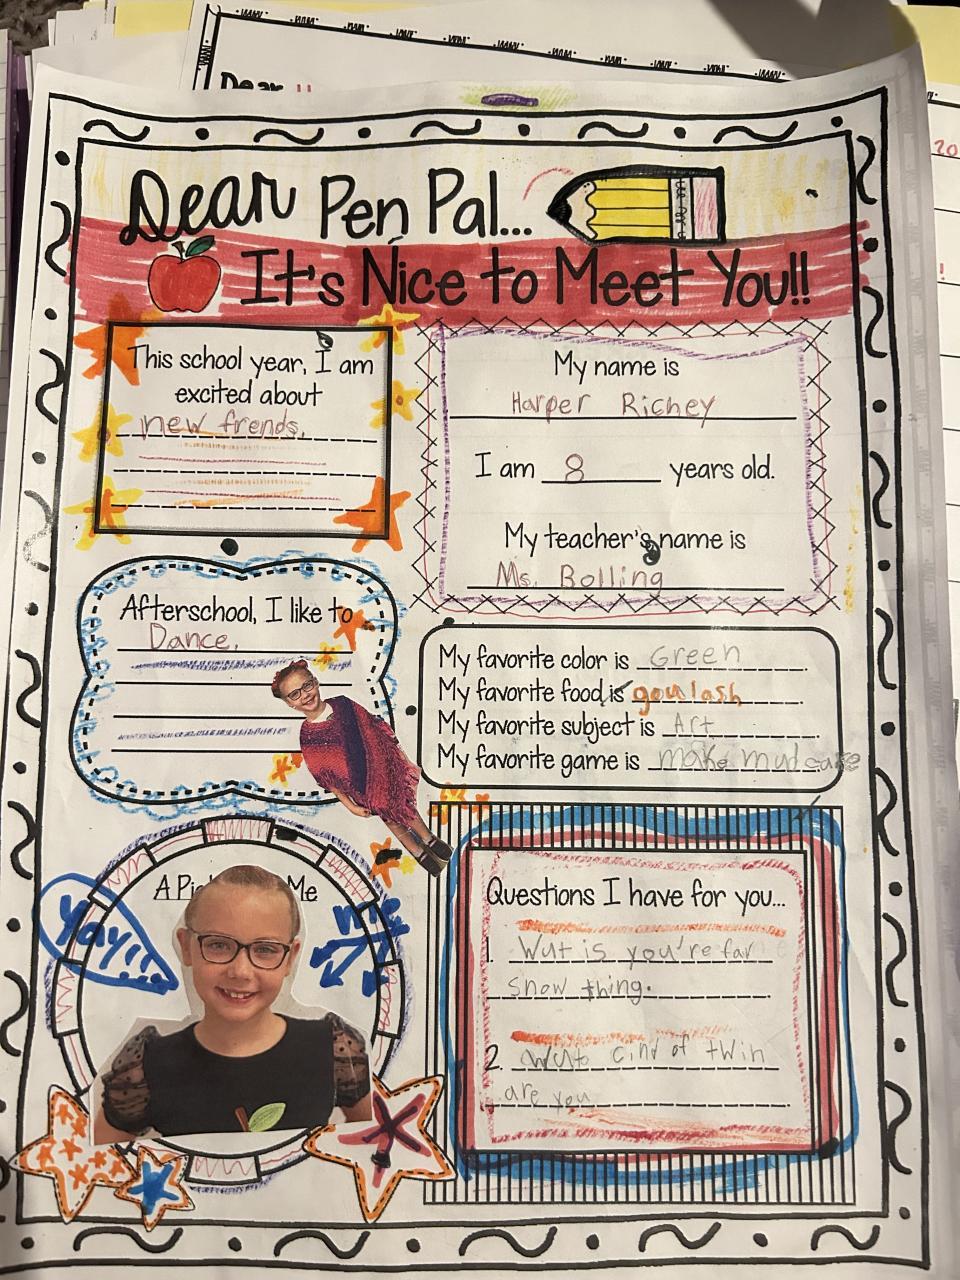 Dear
Dear Pen Pal...
It's Nice to Meet You!!
This school year, I am
excited about
new frends.
My name is
Harper Richey
I am 8 years old.
My teacher's name is
Ms. Bolling
Afterschool, I like to
Dance.
My favorite color is Green.
My favorite food is goulash.
My favorite subject is Art.
My favorite game is make mud cake
A Pi Me
yay!
me
Questions I have for you...
1. Wut is you're fav
snow thing.
2. Wut cind of twin
are you
20